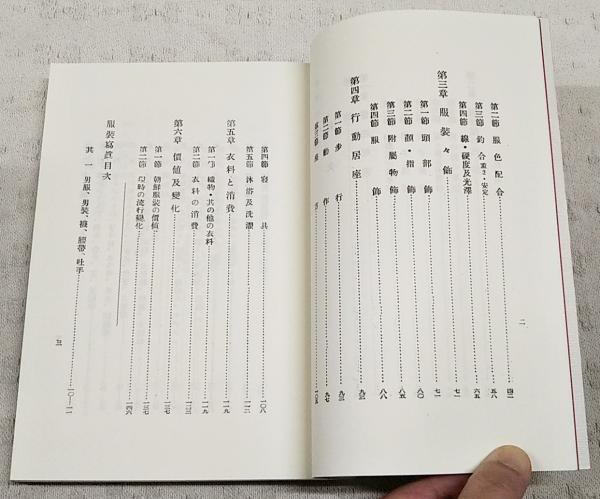 第二節 服色配合 四二
第三節 釣合 重さ・安定 五八
第四節 線・硬度及光澤 六五
第三章 服裝々飾 七一
第一節 頭部飾 七一
第二節 顏・指飾 八〇
第三節 附屬物飾 八五
第四節 服飾 八八
第四章 行動居座 九三
第一節 步行 九三
第二節 動作 九七
一〇五
二
第四節 寢具 一〇八
第五節 沐浴及洗濯 一一三
第五章 衣料と消費 一一九
第一節 織物・其の他の衣料 一一九
第二節 衣料の消費 一三三
第六章 價値及變化 一三七
第一節 朝鮮服裝の價値 一三七
第二節 現時の流行變化 一四六
服裝寫眞目次
其一 男服、男裝、襪、腰帶、吐手 一〇―一一
三